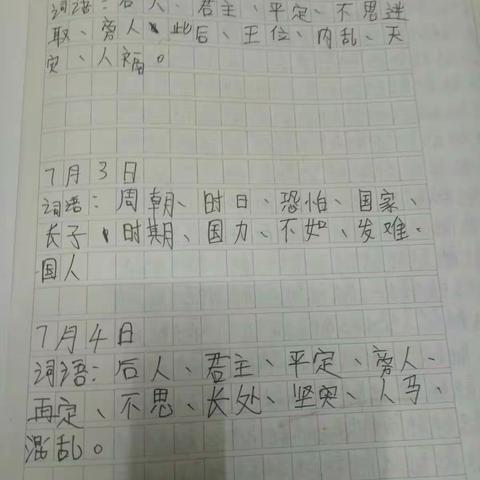 词语：后人、君主、平定、不思进
取、旁人、此后、王位、内乱、天
灾、人祸。
7月3日
词语：周朝、时日、恐怕、国家、
长子、时期、国力、不如、发难、
国人
7月4日
词语：后人、君主、平定、旁人、
再定、不思、长处、坚、人马、
混乱。